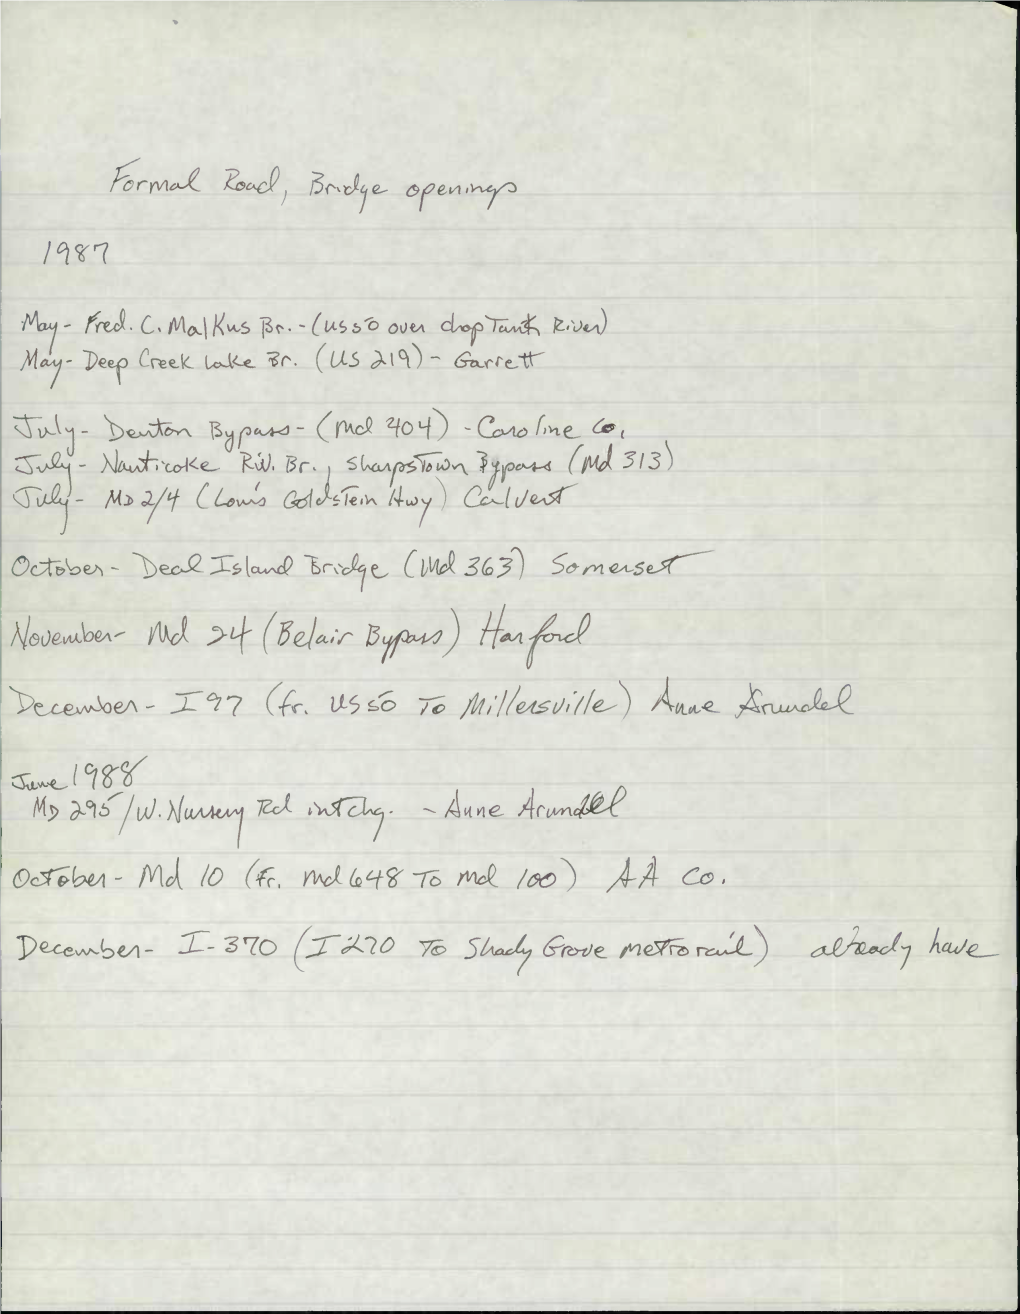 Formal Road, Bridge openings
1987
May- Fred. C. Malkus Br.-(US50 over chop Tank River)
May- Deep Creek Lake Br. (US 219) - Garrett
July- Denton Bypass- (Md 404) - Caroline Co.
July- Nanticoke Riv. Br., Sharpstown Bypass (Md 313)
July- MD 2/4 (Louis Goldstein Hwy) Calvert
October- Deal Island Bridge (Md 363) Somerset
November- Md 24 (Belair Bypass) Harford
December- I 97 (fr. US 50 To Millersville) Anne Arundel
June 1988
MD 295/W. Nursery Rd intchg. - Anne Arundel
October- Md 10 (Fr. Md 648 To Md 100) AA Co.
December- I-370 (I 270 To Shady Grove metrorail) already have